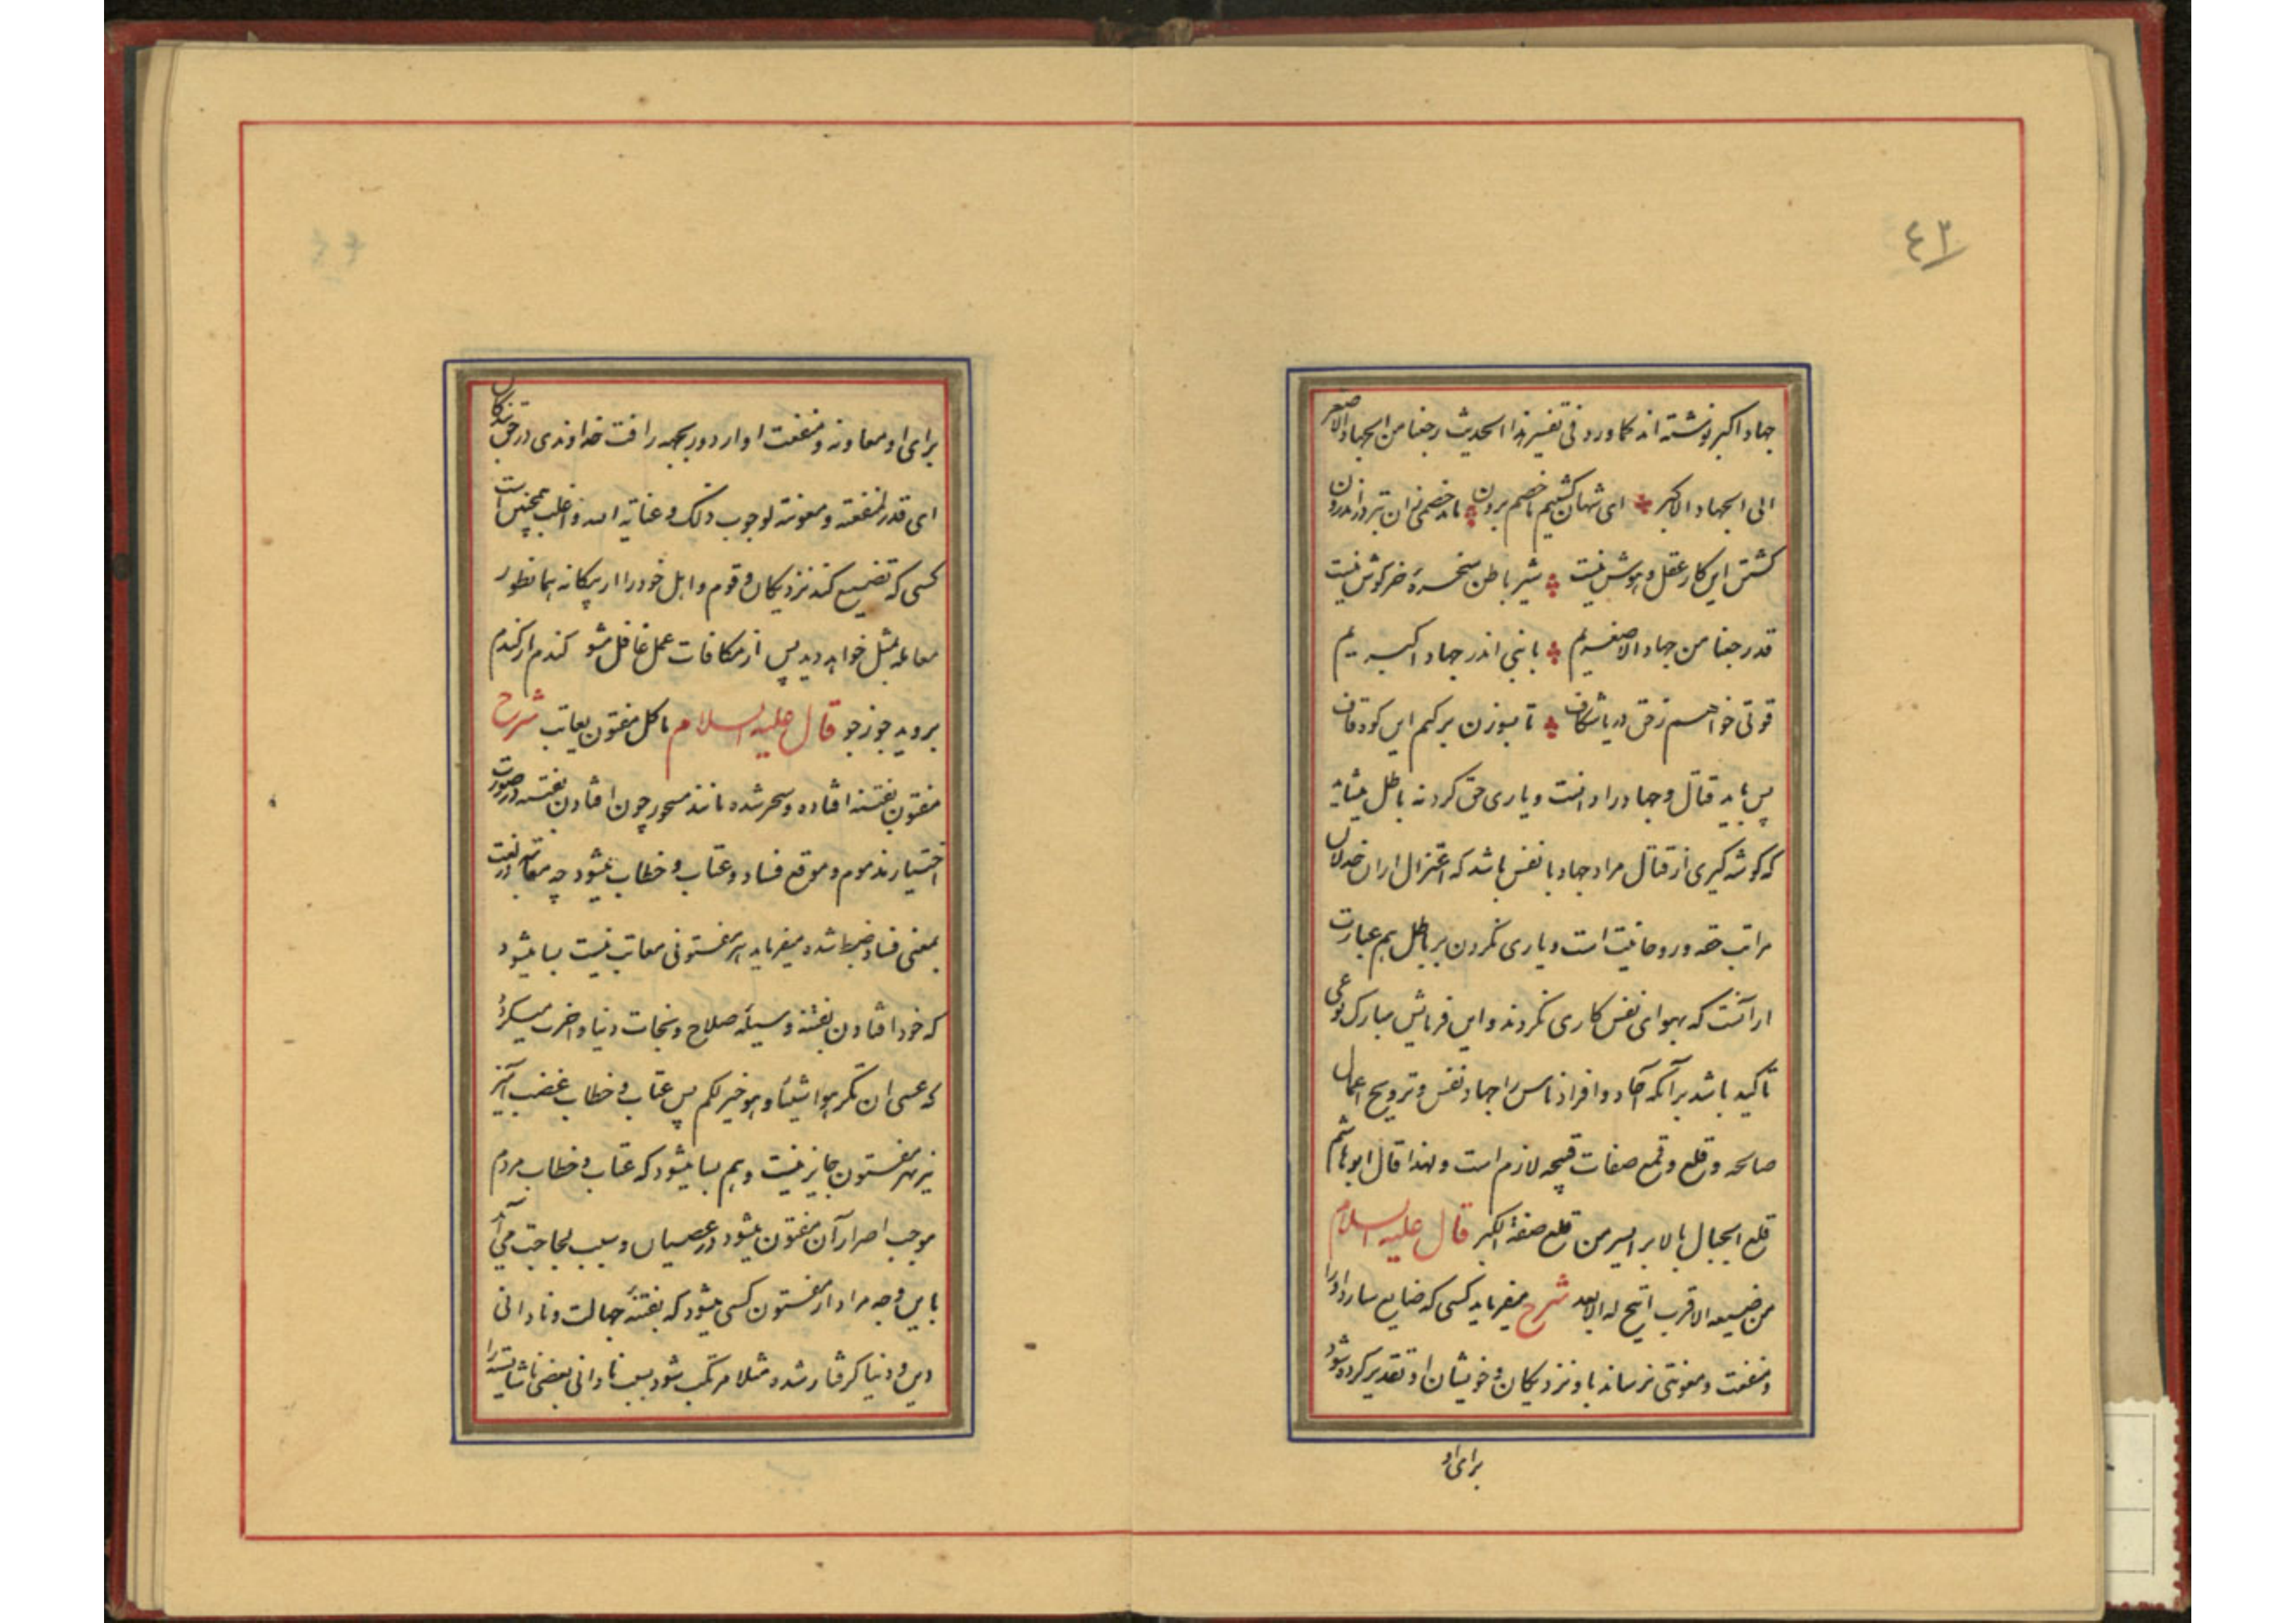 ٤٣
جهاد اکبر نوشته اند کما ورد فی تفسیر هذا الحدیث رجعنا من الجهاد الاصغر
الی الجهاد الاکبر ای شهان کشتیم ما خصم برون ماند خصمی زان بتر در اندرون
کشتن این کار عقل و هوش نیست شیر باطن سخره خرکوش نیست
قد رجعنا من جهاد الاصغریم با نبی اندر جهاد اکبریم
قوتی خواهم زحق دریا شکاف تا بسوزن برکنم این کوه قاف
پس باید قتال و جهاد را دانست و یاری حق کرد نه باطل
که کوشه کیری از قتال مراد جهاد با نفس باشد که اعتزال از ان خذلان
مراتب حقه و روحانیت است و یاری نکردن بر باطل هم عبارت
از آنست که بهوای نفس کاری نکردند و این فرمایش مبارک نوعی
تاکید باشد بر آنکه آحاد و افراد ناس را جهاد نفس و ترویج اعمال
صالحه و قلع و قمع صفات قبیحه لازم است و لهذا قال ابو هاشم
قلع الجبال بالابر ایسر من قلع صفة الکبر قال علیه السلام
من ضیعه الاقرب اتیح له الابعد شرح میفرماید کسی که ضایع سازد او را
و منفعت و معونتی نرساند باو نزدیکان و خویشان او تقدیر کرده شود
برای او
برای او معاونه و منفعت او از دور بجهه رافت خداوندی در حق بندکان
ای قدر لمنفعته و معونته لوجوب ذلک و عنایة الله و اغلب همچنین است
کسی که تضییع کند نزدیکان و قوم و اهل خود را از بیکانه همانطور
معامله بمثل خواهد دید پس از مکافات عمل غافل مشو کندم از کندم
بروید جو ز جو قال علیه السلام ما کل مفتون یعاتب شرح
مفتون بفتنه افتاده و سحر شده مانند مسحور چون افتادن بفتنه در صورت
اختیار مذموم و موقع فساد و عتاب و خطاب میشود چه معاتبه در لغت
بمعنی فساد ضبط شده میفرماید هر مفتونی معاتب نیست بسا میشود
که خود افتادن بفتنه وسیله صلاح و نجات دنیا و اخرت میکردد
که عسی ان تکرهوا شیئا و هو خیر لکم پس عتاب و خطاب غضب آمیز
نیز بهر مفتون جایز نیست و هم بسا میشود که عتاب و خطاب مردم
موجب اصرار آن مفتون میشود در عصیان و سبب لجاجت می آید
باین وجه مراد از مفتون کسی میشود که بفتنه جهالت و نادانی
دین و دنیا کرفتار شده مثلا مرتکب شود بسبب نادانی بعضی ناشایسته را